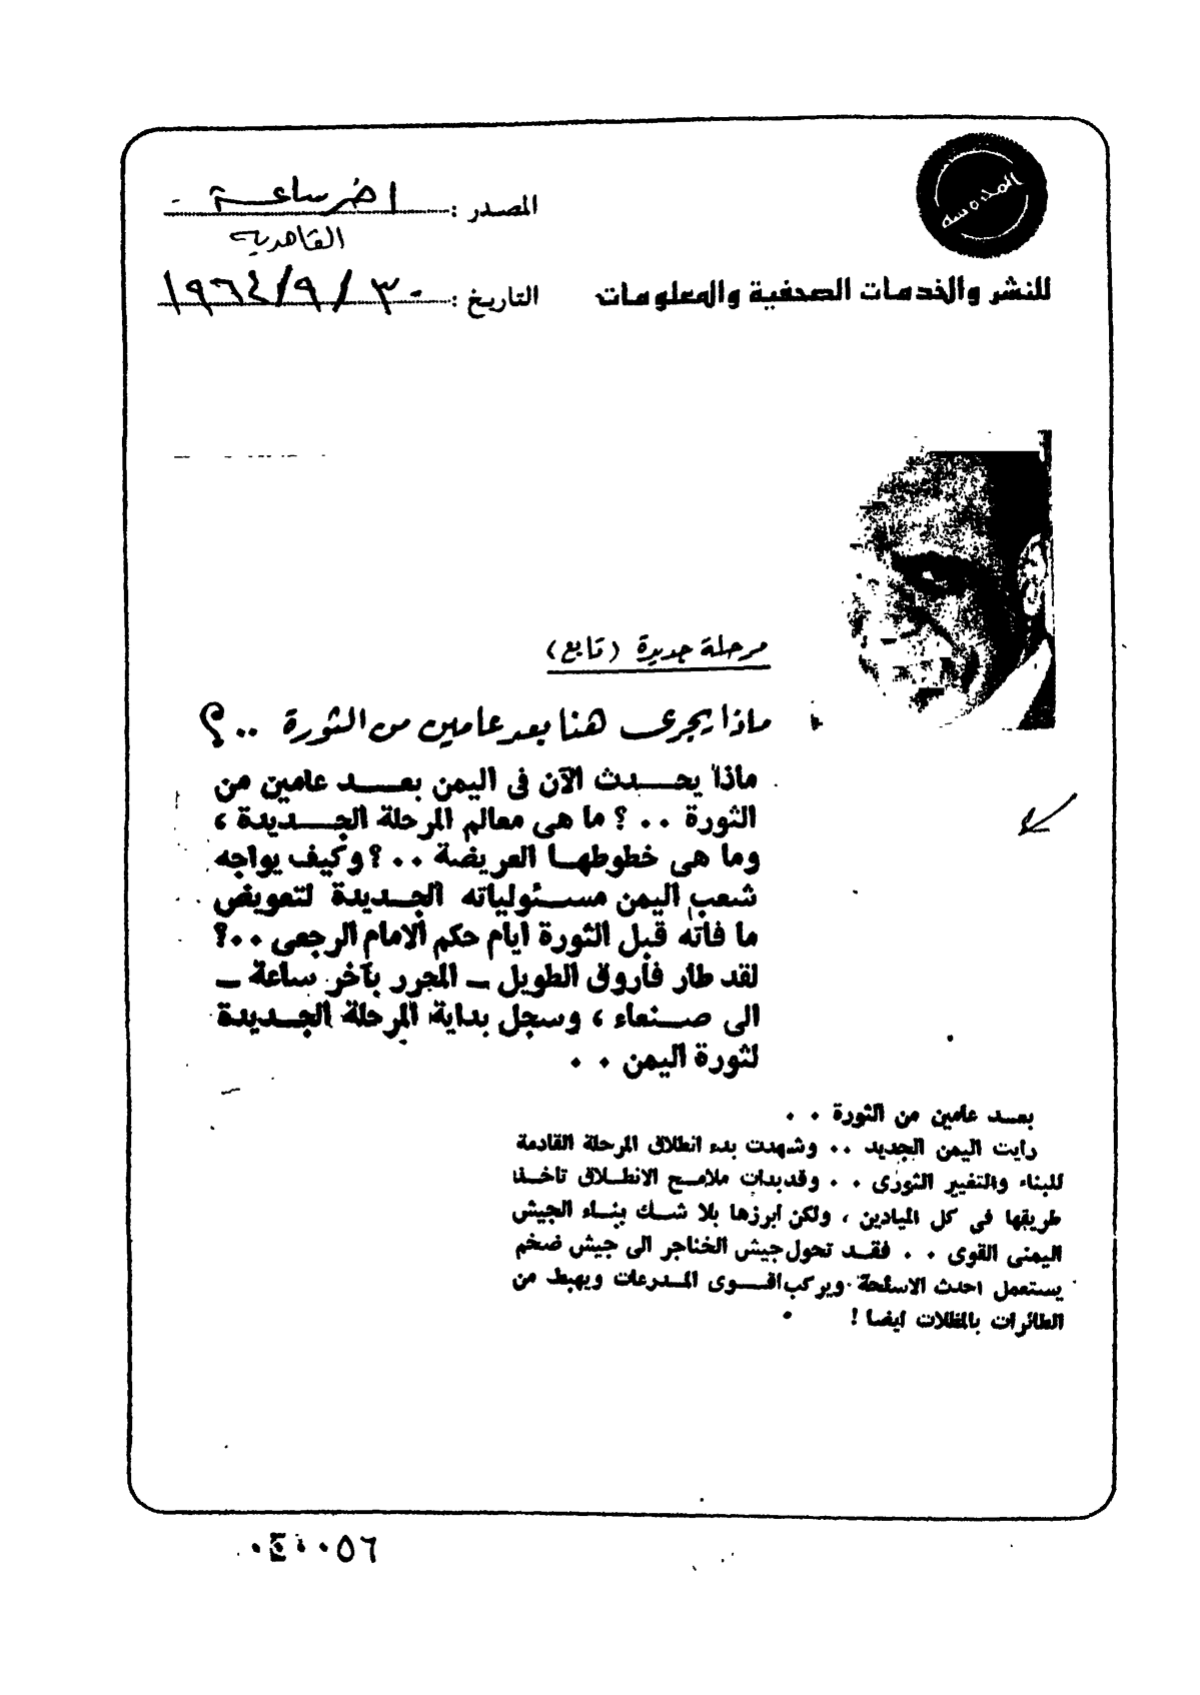 المحروسة
للنشر والخدمات الصحفية والمعلومات
المصدر : اخر ساعة
القاهرية
التاريخ : ٣٠ / ٩ / ١٩٦٤
مرحلة جديدة (تابع)
ماذا يجرى هنا بعد عامين من الثورة ..؟
ماذا يحدث الآن فى اليمن بعد عامين من
الثورة ..؟ ما هى معالم المرحلة الجديدة ،
وما هى خطوطها العريضة ..؟ وكيف يواجه
شعب اليمن مسئولياته الجديدة لتعويض
ما فاته قبل الثورة ايام حكم الامام الرجعى ..؟
لقد طار فاروق الطويل ــ المحرر بآخر ساعة ــ
الى صنعاء ، وسجل بداية المرحلة الجديدة
لثورة اليمن . .
بعد عامين من الثورة . .
رأيت اليمن الجديد .. وشهدت بدء انطلاق المرحلة القادمة
للبناء والتغيير الثورى . . وقد بدات ملامح الانطلاق تاخذ
طريقها فى كل الميادين ، ولكن ابرزها بلا شك بناء الجيش
اليمنى القوى . . فقد تحول جيش الخناجر الى جيش ضخم
يستعمل احدث الاسلحة ويركب اقوى المدرعات ويهبط من
الطائرات بالمظلات ايضا !